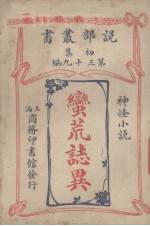 說部叢書
初集
第三十九編
神怪小說
蠻荒誌異
上海商務印書館發行